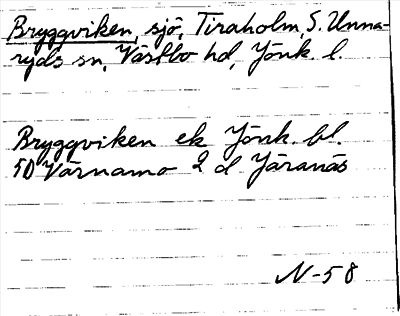 Bryggviken, sjö, Tiraholm, S. Unna-
ryds sn, Västbo hd, Jönk. l.
Bryggviken ek Jönk. bl.
5D Värnamo 2 d Järanäs
N-58